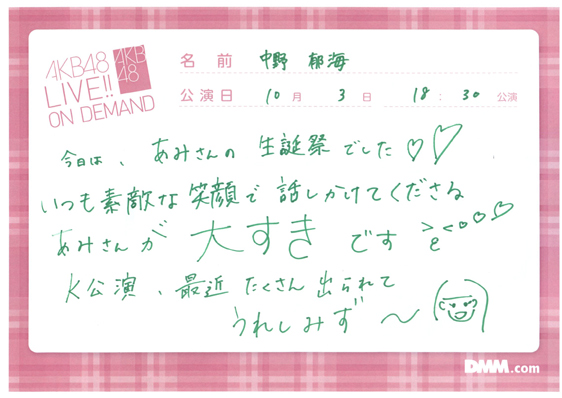 AKB48
LIVE!!
ON DEMAND
AKB
48
名前 中野 郁海
公演日 10月 3日 18:30公演
今日は、あみさんの生誕祭でした♡♡
いつも素敵な笑顔で話しかけてくださる
あみさんが大すきです
K公演、最近たくさん出られて
うれしみず〜
DMM.com